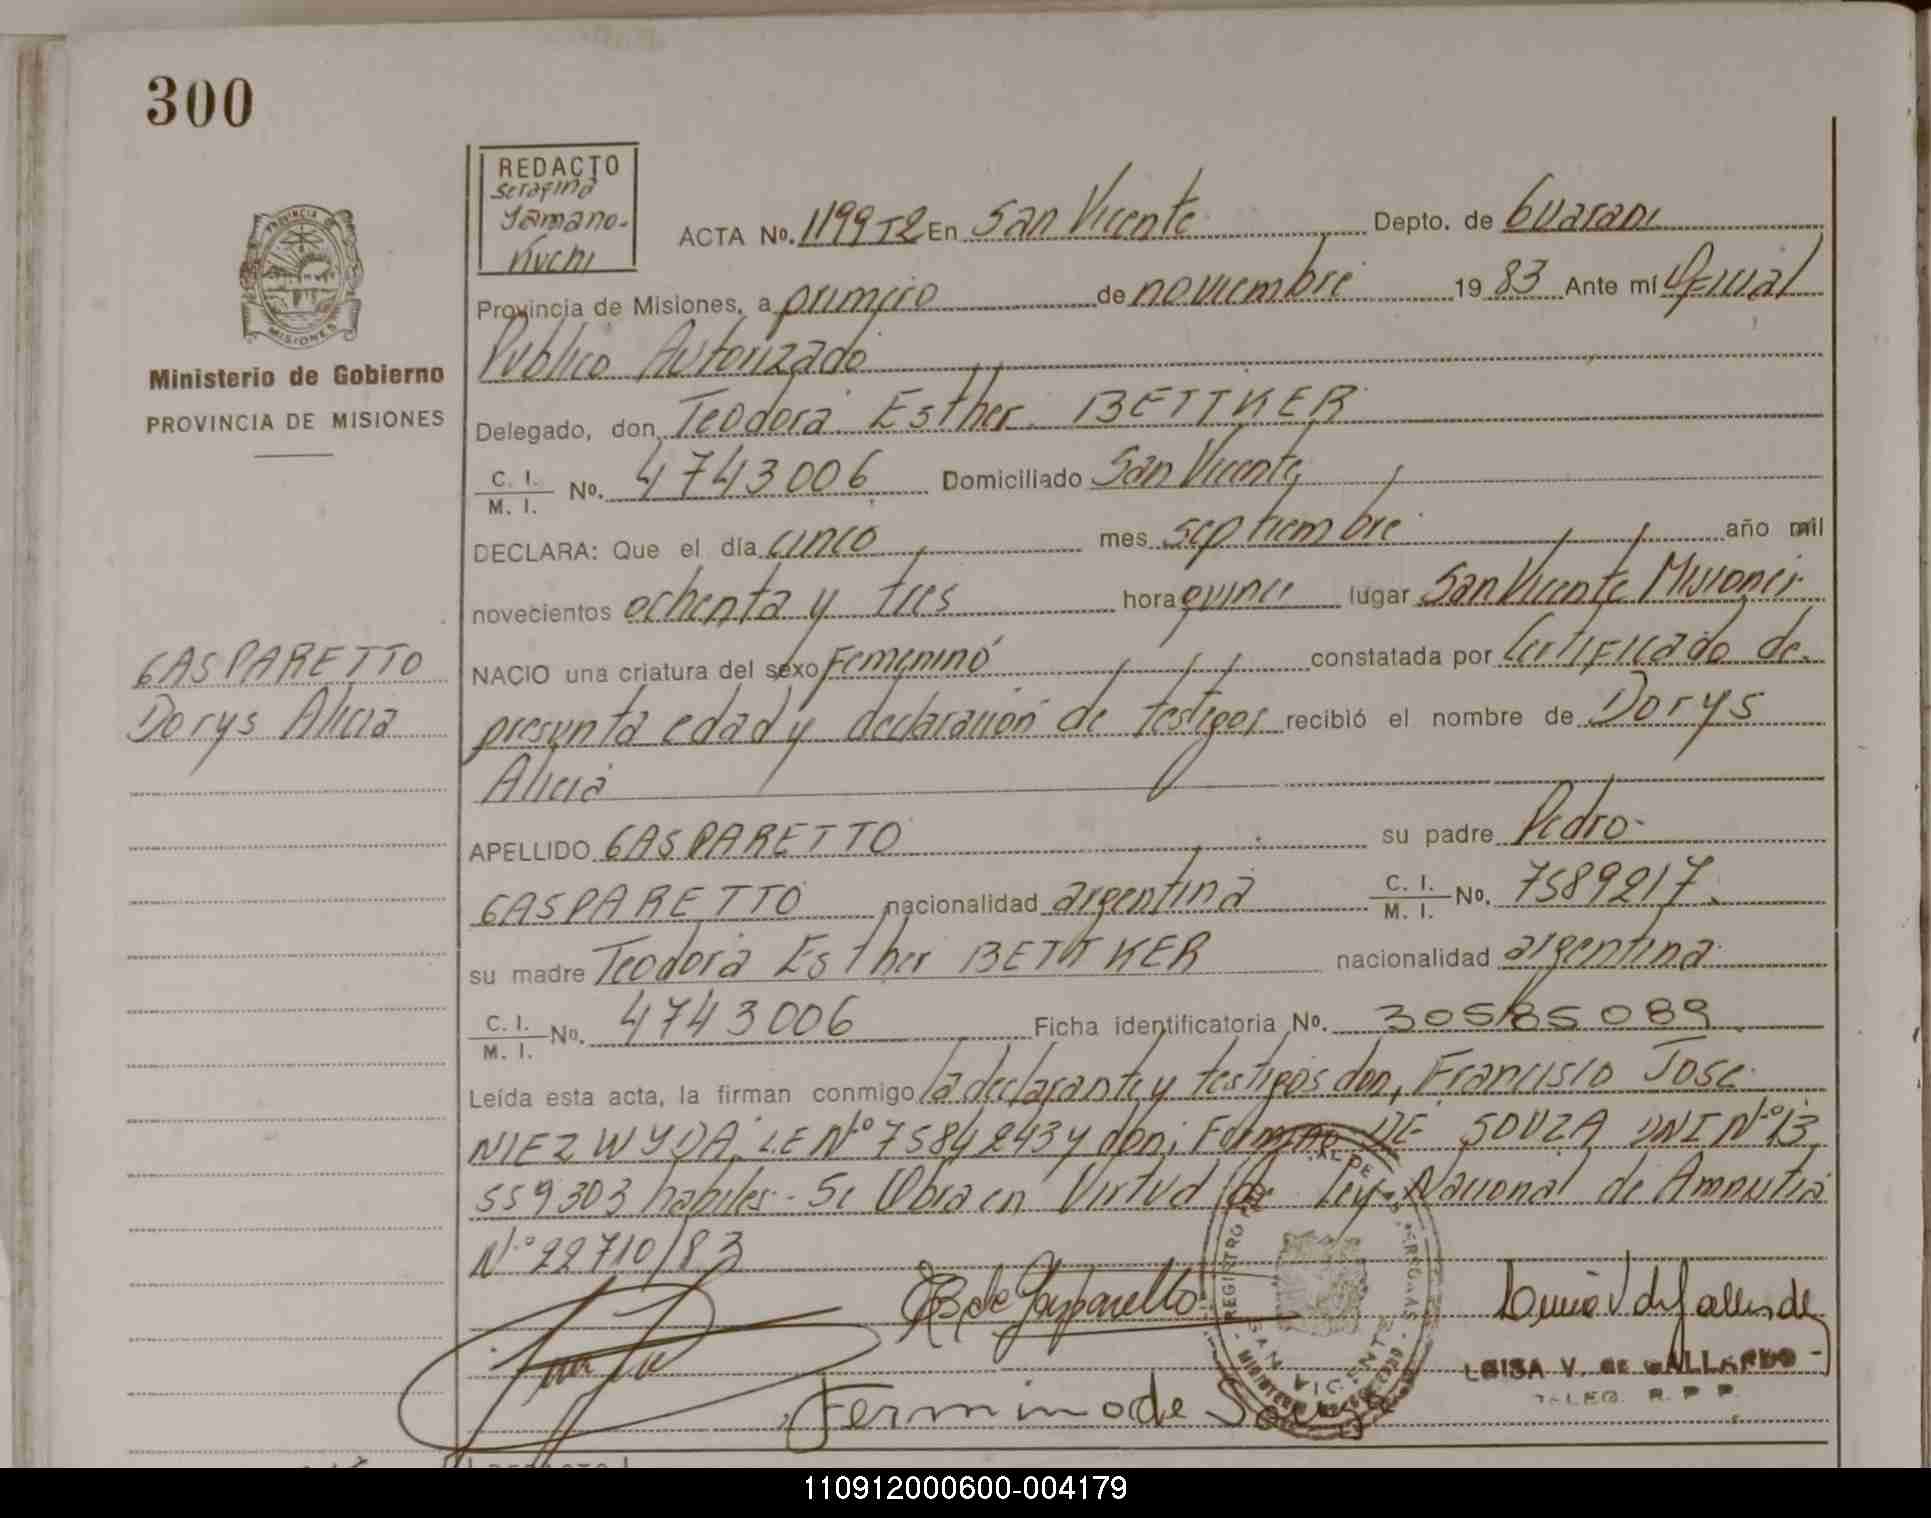 300
REDACTO
Serafina
Yamano-
Kuchi
PROVINCIA DE
MISIONES
Ministerio de Gobierno
PROVINCIA DE MISIONES
ACTA No. 1199 T2 En San Vicente Depto. de Guarani
Provincia de Misiones, a primero de noviembre 1983 Ante mí Oficial
Publico Autorizado
Delegado, don Teodora Esther BETTKER
C. I. / M. I. No. 4743006 Domiciliado San Vicente
DECLARA: Que el día cinco mes septiembre año mil
novecientos ochenta y tres hora quince lugar San Vicente Misiones
NACIO una criatura del sexo Femenino constatada por Certificado de
presunta edad y declaración de testigos recibió el nombre de Dorys
Alicia
GASPARETTO
Dorys Alicia
APELLIDO GASPARETTO su padre Pedro
GASPARETTO nacionalidad argentina C. I. / M. I. No. 7589217
su madre Teodora Esther BETTKER nacionalidad argentina
C. I. / M. I. No. 4743006 Ficha identificatoria No. 30585089
Leída esta acta, la firman conmigo la declarante y testigos don, Francisco Jose
NIEZWYDA. L.E N° 7584243 y don; Fermino DE SOUZA DNI N° 13
559303 habiles - Se Obra en Virtud de Ley Nacional de Amnistia
N° 22710/83
B de Gasparetto
Fermino de Souza
REGISTRO
SAN VICENTE
LUISA V. DE GALLARDO
DELEG. R. P. P.
110912000600-004179